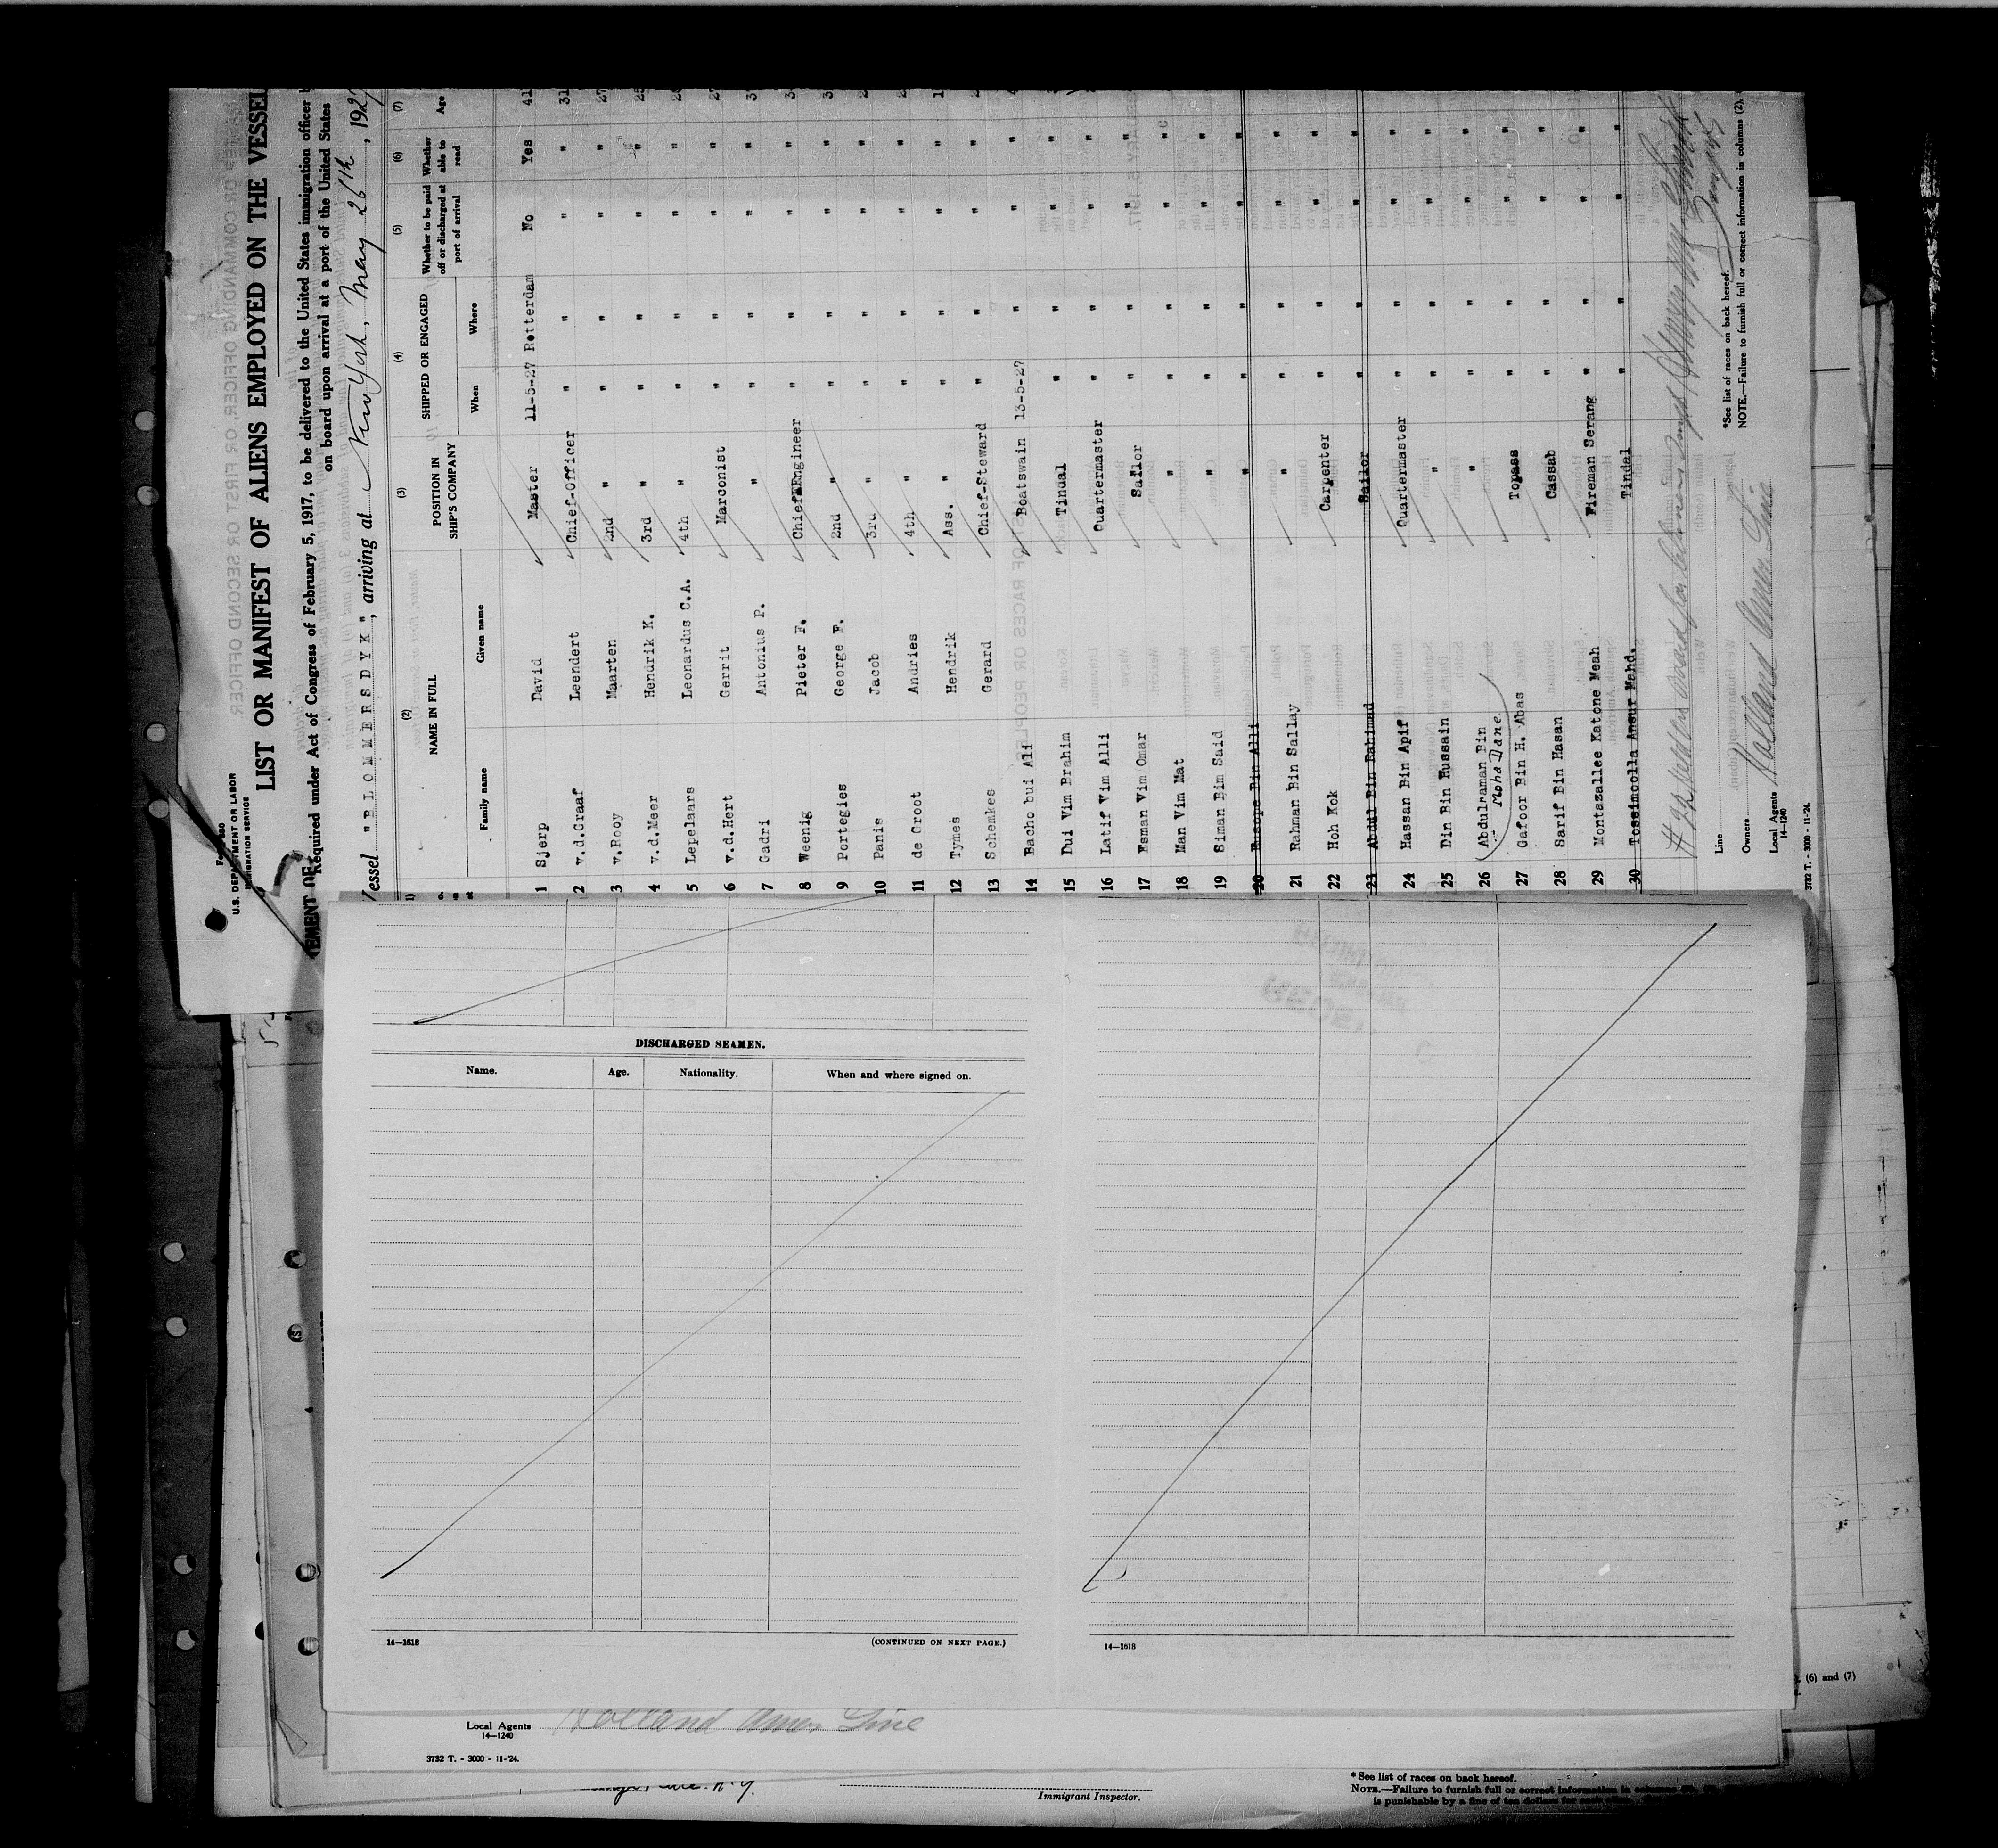 Form 680
U.S. DEPARTMENT OF LABOR
IMMIGRATION SERVICE
LIST OR MANIFEST OF ALIENS EMPLOYED ON THE VESSEL
Required under Act of Congress of February 5, 1917, to be delivered to the United States immigration officer
on board upon arrival at a port of the United States
Vessel "BLOMMERSDYK", arriving at New York, May 26th, 1927
(2) (3) (4) (5) (6) (7)
NAME IN FULL POSITION IN SHIP'S COMPANY SHIPPED OR ENGAGED Whether to be paid off or discharged at port of arrival Whether able to read Age
Family name Given name When Where
1 Sjerp David Master 11-5-27 Rotterdam No Yes 41
2 v.d.Graaf Leendert Chief-Officer " " " " 31
3 v.Rooy Maarten 2nd " " " " " 27
4 v.d.Meer Hendrik K. 3rd " " " " "
5 Lepelaars Leonardus C.A. 4th " " " " "
6 v.d.Hert Gerrit Marconist " " " " 27
7 Gadri Antonius P. " " " " "
8 Weenig Pieter F. Chief Engineer " " " "
9 Portegies George F. 2nd " " " " "
10 Panis Jacob 3rd " " " " "
11 de Groot Andries 4th " " " " "
12 Tymes Hendrik Ass. " " " " "
13 Schemkes Gerard Chief-Steward " " " "
14 Bacho bui Ali Boatswain 13-5-27 " " "
15 Dui Vim Brahim Tindal " " " "
16 Latif Vim Alli Quartermaster " " " "
17 Esman Vim Omar Sailor " " " "
18 Man Vim Mat " " " " "
19 Siman Bim Said " " " " "
20 Bin Alli " " " " "
21 Rahman Bin Sallay " " " " "
22 Hoh Kok Carpenter " " " "
23 Abdul Bin Rahimad Sailor " " " "
24 Hassan Bin Apif Quartermaster " " " "
25 Din Bin Hussain " " " " "
26 (Abdulraman Bin Moha Dane) " " " " "
27 Gafoor Bin H. Abas Topass " " " "
28 Sarif Bin Hasan Cassab " " " "
29 Montazallee Katone Meah Fireman Serang " " " "
30 Tossimolla Ansur Mahd. Tindal " " " "
Line
Owners
Local Agents Holland Amer. Line
14-1240
3732 T. - 3000 - 11-'24
*See list of races on back hereof.
NOTE.—Failure to furnish full or correct information in columns (2),
DISCHARGED SEAMEN.
Name. Age. Nationality. When and where signed on.
14—1618
(CONTINUED ON NEXT PAGE.)
14—1618
(6) and (7)
Local Agents Holland Amer. Line
14—1240
3732 T. - 3000 - 11-'24.
N.Y.
Immigrant Inspector.
*See list of races on back hereof.
NOTE.—Failure to furnish full or correct information in columns
is punishable by a fine of ten dollars for each